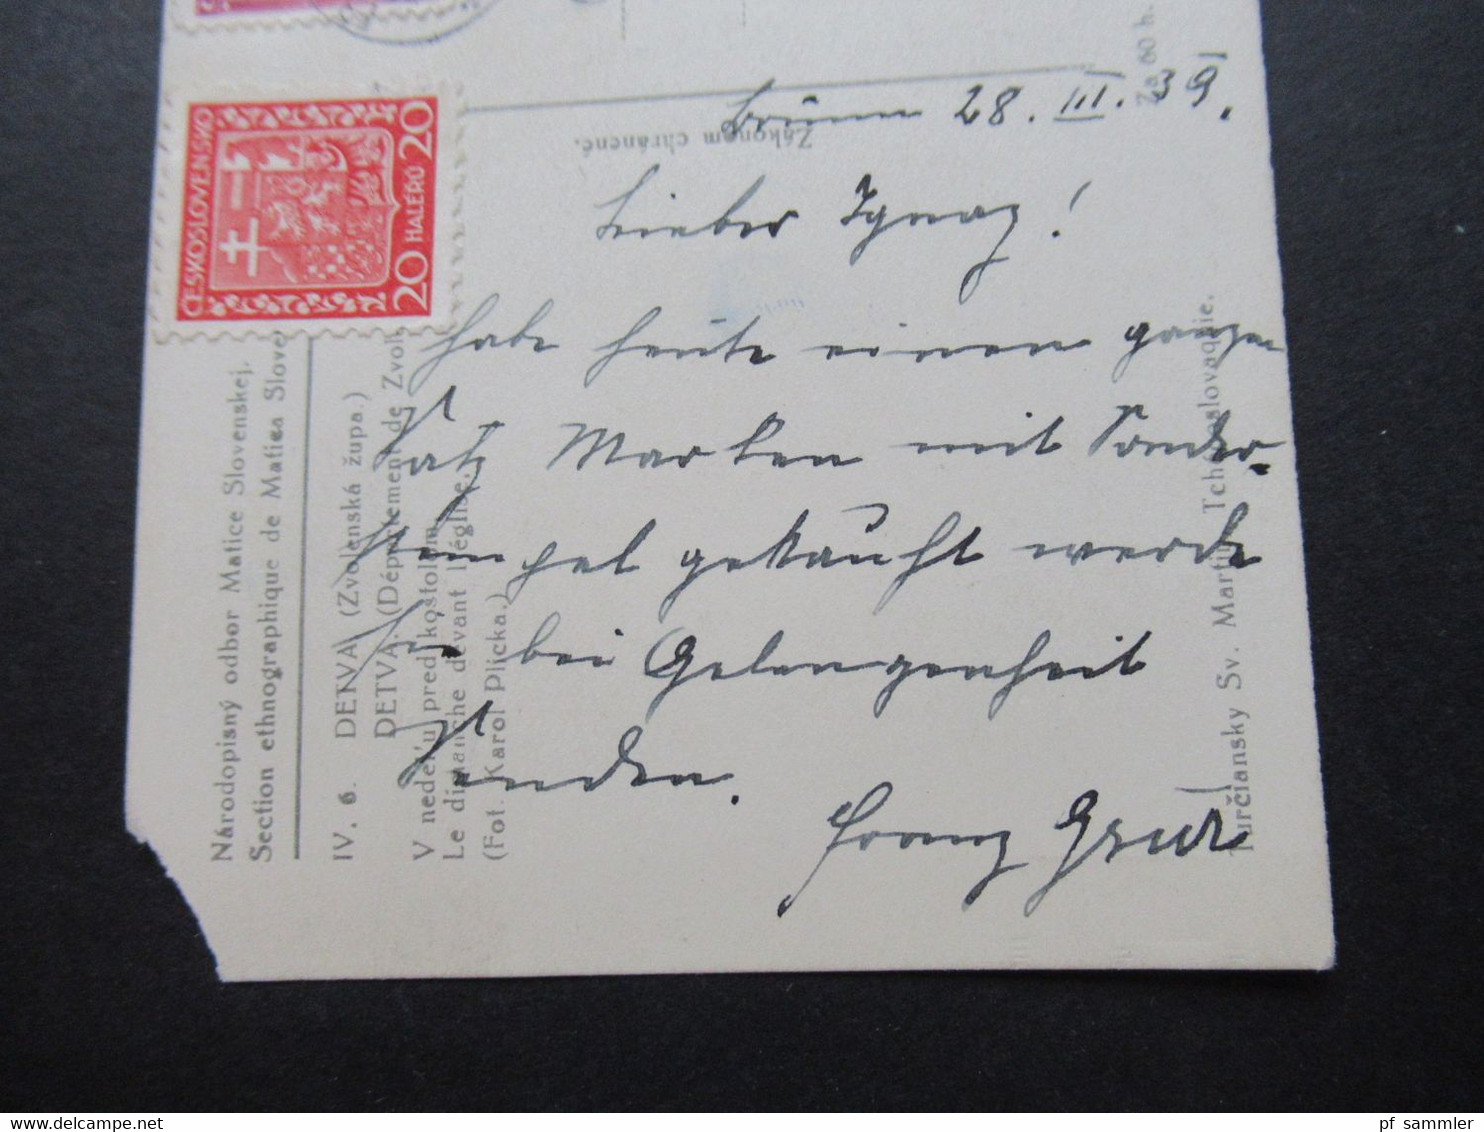 Za 60 h.
Brünn 28. III. 39.
Zákonom chránené.
Lieber Ignaz!
habe heute einen ganzen
Satz Marken mit Sonder-
stempel gekauft werde
Sie bei Gelegenheit
senden.
Franz
ČESKOSLOVENSKO
20 HALÉŘŮ 20
Národopisný odbor Matice Slovenskej.
Section ethnographique de Matica Slove
IV. 6. DETVA (Zvolenská župa.)
DETVA. (Département de Zvol
V nedeľu pred kostolom.
Le dimanche devant l'église.
(Fot. Karol Plicka.)
Turčiansky Sv. Martin. Tchécoslovaquie.
pf_sammler